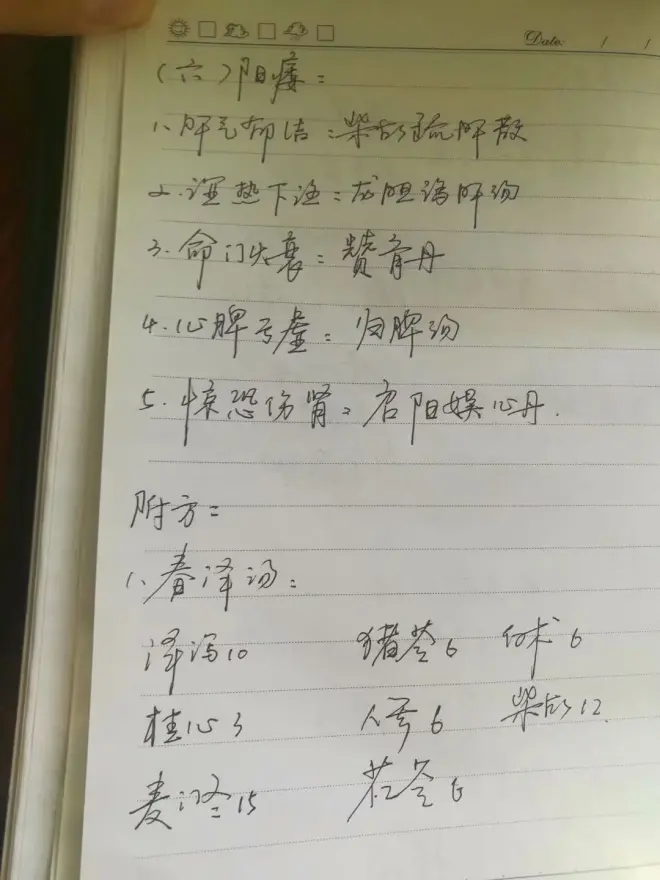 Date / /
(六)阳痿：
1、肝气郁结：柴胡疏肝散
2.湿热下注：龙胆泻肝汤
3.命门火衰：赞育丹
4.心脾亏虚：归脾汤
5.惊恐伤肾：启阳娱心丹.
附方：
1、春泽汤：
泽泻10 猪苓6 白术6
桂心3 人参6 柴胡12
麦门冬15 茯苓6